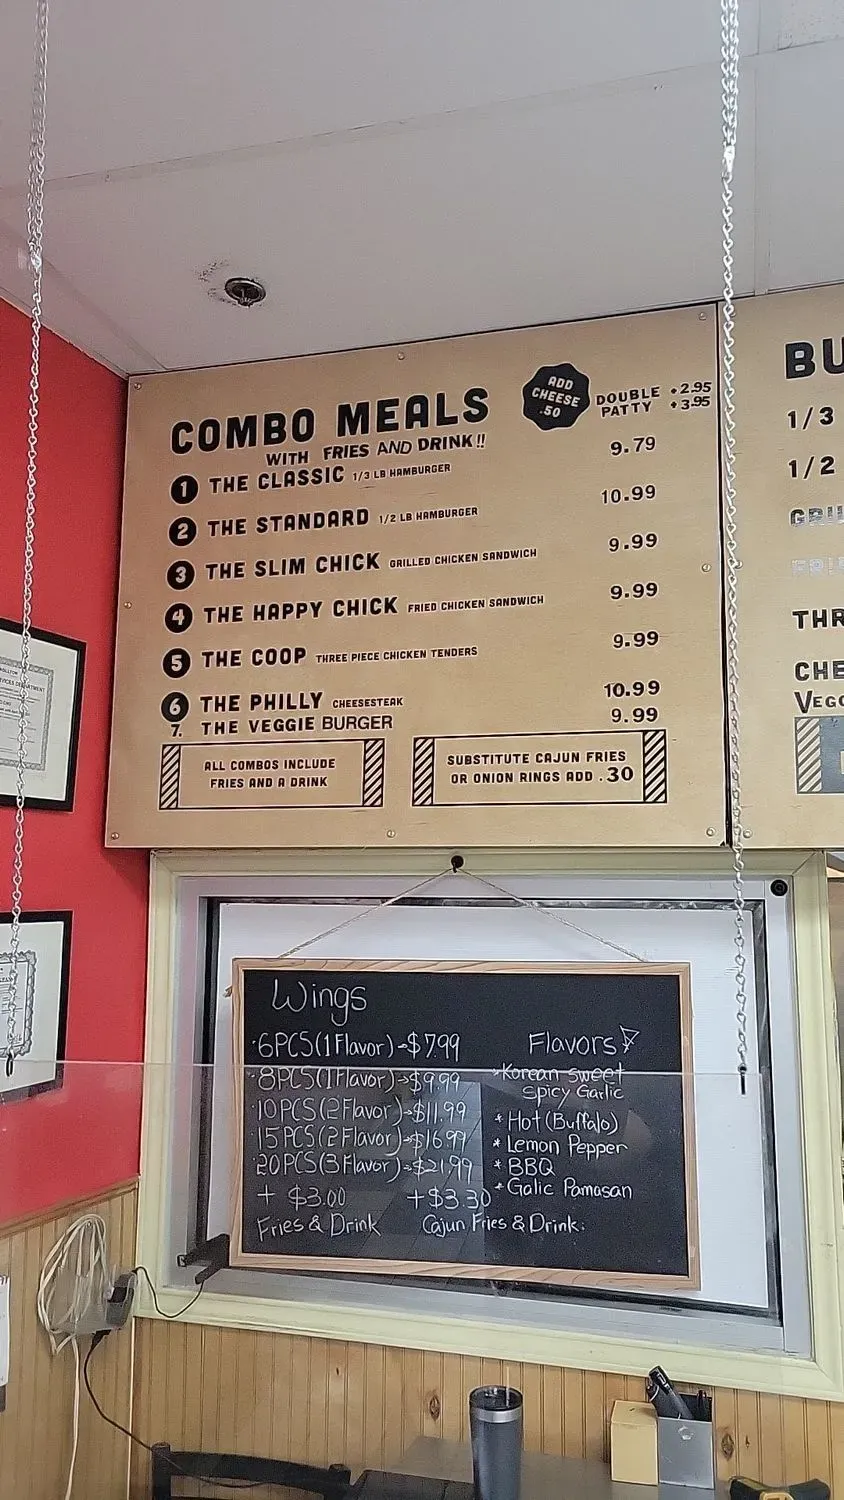 COMBO MEALS
WITH FRIES AND DRINK!!
ADD
CHEESE
.50
DOUBLE +2.95
PATTY +3.95
1 THE CLASSIC 1/3 LB HAMBURGER 9.79
2 THE STANDARD 1/2 LB HAMBURGER 10.99
3 THE SLIM CHICK GRILLED CHICKEN SANDWICH 9.99
4 THE HAPPY CHICK FRIED CHICKEN SANDWICH 9.99
5 THE COOP THREE PIECE CHICKEN TENDERS 9.99
6 THE PHILLY CHEESESTEAK 10.99
7. THE VEGGIE BURGER 9.99
ALL COMBOS INCLUDE
FRIES AND A DRINK
SUBSTITUTE CAJUN FRIES
OR ONION RINGS ADD .30
BU
1/3
1/2
GRI
FRI
THR
CHE
VEGG
Wings
6PCS (1 Flavor) → $7.99
8PCS (1 Flavor) → $9.99
10 PCS (2 Flavor) → $11.99
15 PCS (2 Flavor) → $16.99
20 PCS (3 Flavor) → $21.99
+ $3.00
Fries & Drink
+ $3.30
Cajun Fries & Drink.
Flavors
* Korean sweet
spicy Garlic
* Hot (Buffalo)
* Lemon Pepper
* BBQ
* Galic Pamasan